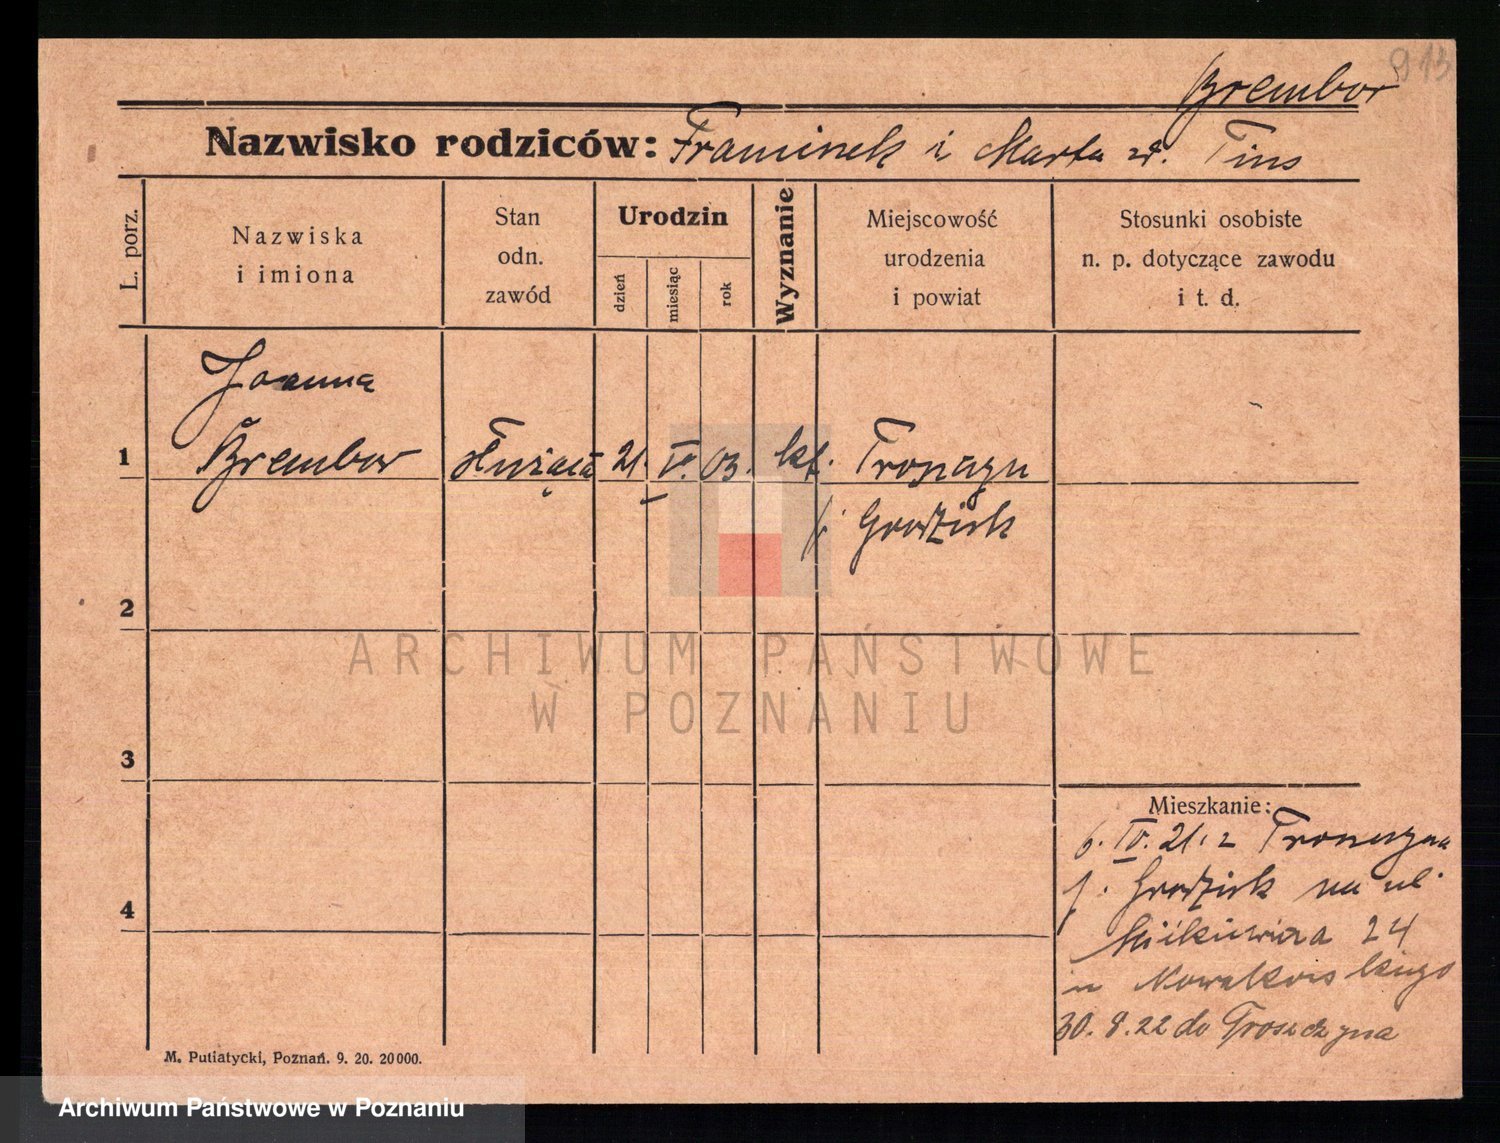 913
Brembor
Nazwisko rodziców: Franciszek i Marta zd. Tins
L. porz.
Nazwiska
i imiona
Stan
odn.
zawód
Urodzin
dzień
miesiąc
rok
Wyznanie
Miejscowość
urodzenia
i powiat
Stosunki osobiste
n. p. dotyczące zawodu
i t. d.
Joanna
1 Brembor służąca 21. V. 03. kt.
p. Grodzisk
2
3
4
Mieszkanie:
6. IV. 21. z
p. Grodzisk na ul.
Mickiewicza 24
u Nowakowskiego
30. 8. 22 do
M. Putiatycki, Poznań. 9. 20. 20000.
ARCHIWUM PAŃSTWOWE
W POZNANIU
Archiwum Państwowe w Poznaniu